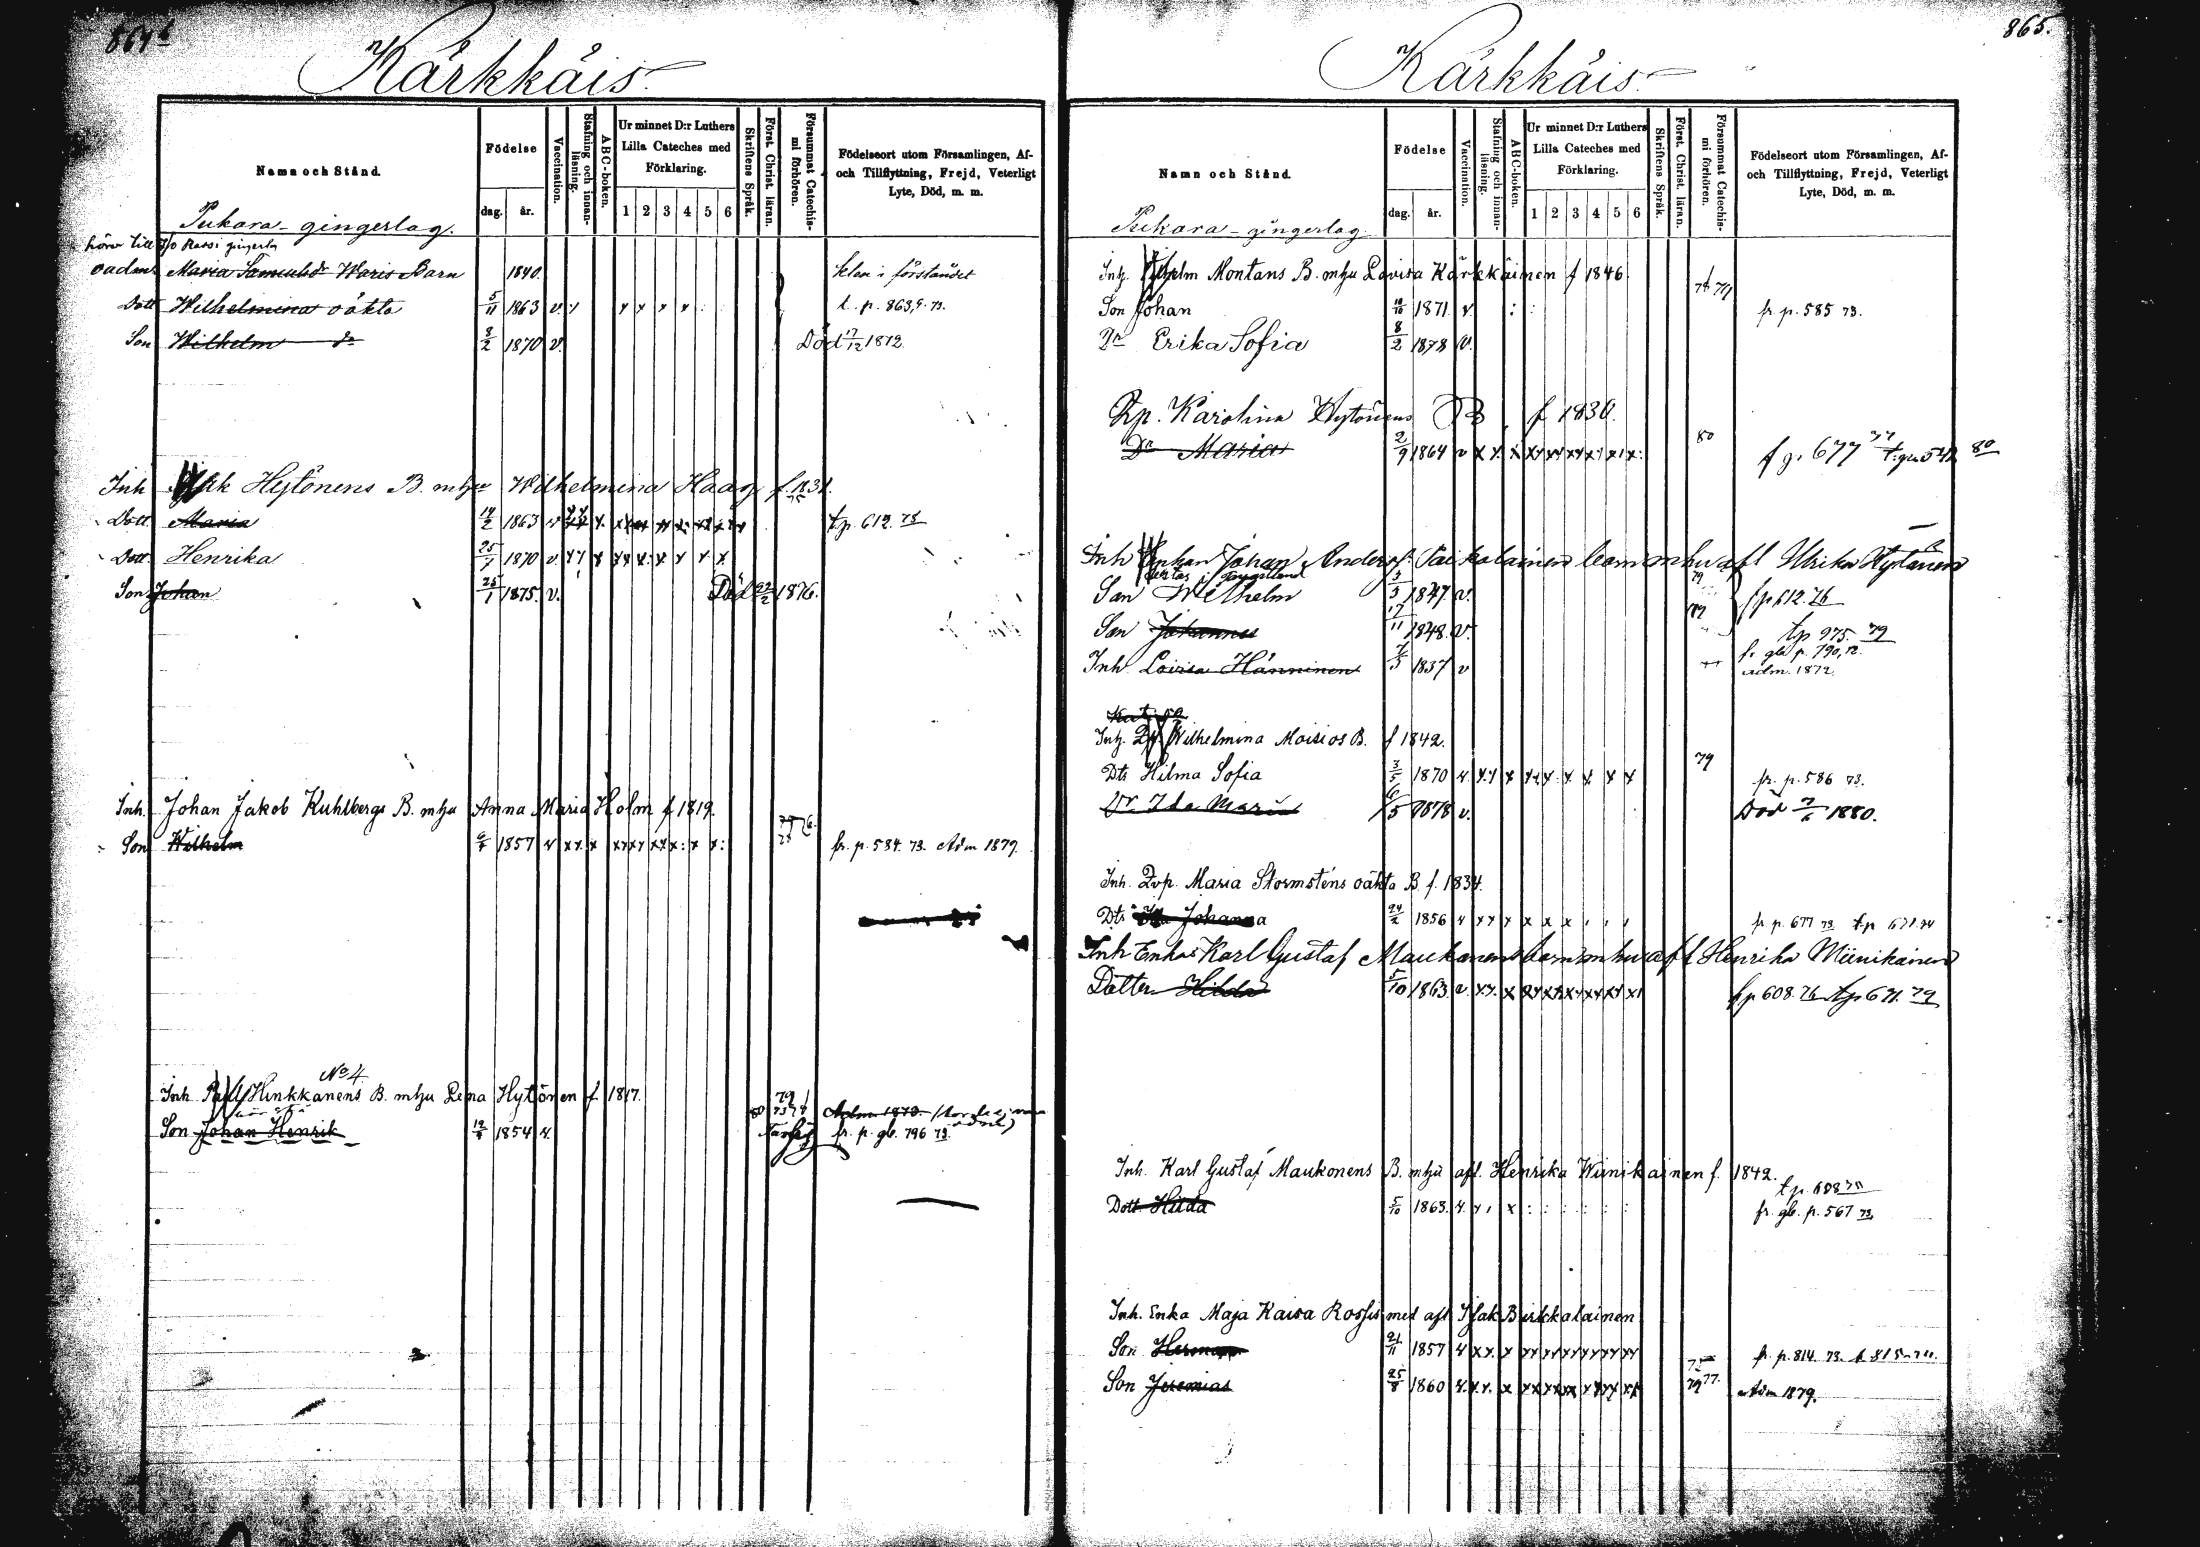 864 b
Kärkkäis
Namn och Stånd.
Födelse
dag.
år.
Vaccination.
Stafning och innan-läsning.
ABC-boken.
Ur minnet D:r Luthers Lilla Cateches med Förklaring.
1 2 3 4 5 6
Skriftens Språk.
Först. Christ. läran.
Försummat Catechis-mi förhören.
Födelseort utom Församlingen, Af- och Tillflyttning, Frejd, Veterligt Lyte, Död, m. m.
Pukara-gingerlag.
hörer till
oadm. Maria Samuelsdr Waris Barn 1840. klen i förståndet
Dott. Wilhelmina oäkta 5/11 1863 v. t. p. 863, 73.
Son Wilhelm dr 8/2 1870 v. Död 17/12 1872.
Inh Hytönens B. m hu Wilhelmina Haag f. 1831.
Dott. Maria 14/2 1863 v tp. 612. 78
Dott. Henrika 25/7 1870 v
Son Johan 25/1 1875. v. Död 22/2 1876.
Inh. Johan Jakob Kuhlbergs B. m hu Anna Maria Holm f 1819.
Son Wilhelm 1857 v fr. p. 584. 73. Adm 1879.
No 4
Inh Paul Hinkkanens B. m hu Lena Hytönen f 1817.
Adm 1873.
Son Johan Henrik 1854 v. fr. p. gb. 796 73.
865.
Kärkkäis
Namn och Stånd.
Födelse
dag.
år.
Vaccination.
Stafning och innan-läsning.
ABC-boken.
Ur minnet D:r Luthers Lilla Cateches med Förklaring.
1 2 3 4 5 6
Skriftens Språk.
Först. Christ. läran.
Försummat Catechis-mi förhören.
Födelseort utom Församlingen, Af- och Tillflyttning, Frejd, Veterligt Lyte, Död, m. m.
Pukara-gingerlag
Inh. Wilhelm Montans B. m hu Lovisa Kärkkäinen f 1846.
Son Johan 1871 v. fr. p. 585 73.
Dr Erika Sofia 8/2 1878 v.
Qp. Karolina Hytönens B f 1830.
Dr Maria 2/9 1864 v 80 f g. 677 77 80
Inh Enkan Johan Anders Paikalainen barn m hu afl Ulrika Hytönen
Son Wilhelm 5/3 1847 v. 79 fp 612. 76
Son Johannes 17/11 1848. v. 79 tp 975. 79
Inh. Lovisa Hänninen 1837 v fr gb p. 790, 72. adm. 1872.
Inh. Wilhelmina Moisios B. f 1842.
Dtr Hilma Sofia 3/5 1870 v 79 fr. p. 586 73.
Dr. Ida Maria 6/5 1878 v. Död 1880.
Inh. Qvp. Maria Stormsténs oäkta B. f. 1834.
Dtr Johanna 24/2 1856 v fr p. 677 73 t.p 671. 74
Inh Enkas Karl Gustaf Maukonens barn m hu afl Henrika Wiinikainen
Dotter Hilda 5/10 1863. v. fp 608. 76 tp 671. 79
Inh. Karl Gustaf Maukonens B. m hu afl. Henrika Wiinikainen f. 1842.
tp. 608
Dott Hilda 5/10 1863. v. fr. gb. p. 567 73.
Inh. Enka Maja Kaisa Rossis med afl Isak Birkkalainen
Son Herman 21/11 1857 v fr. p. 814. 73.
Son Jeremias 25/8 1860 v. 77. Adm 1879.